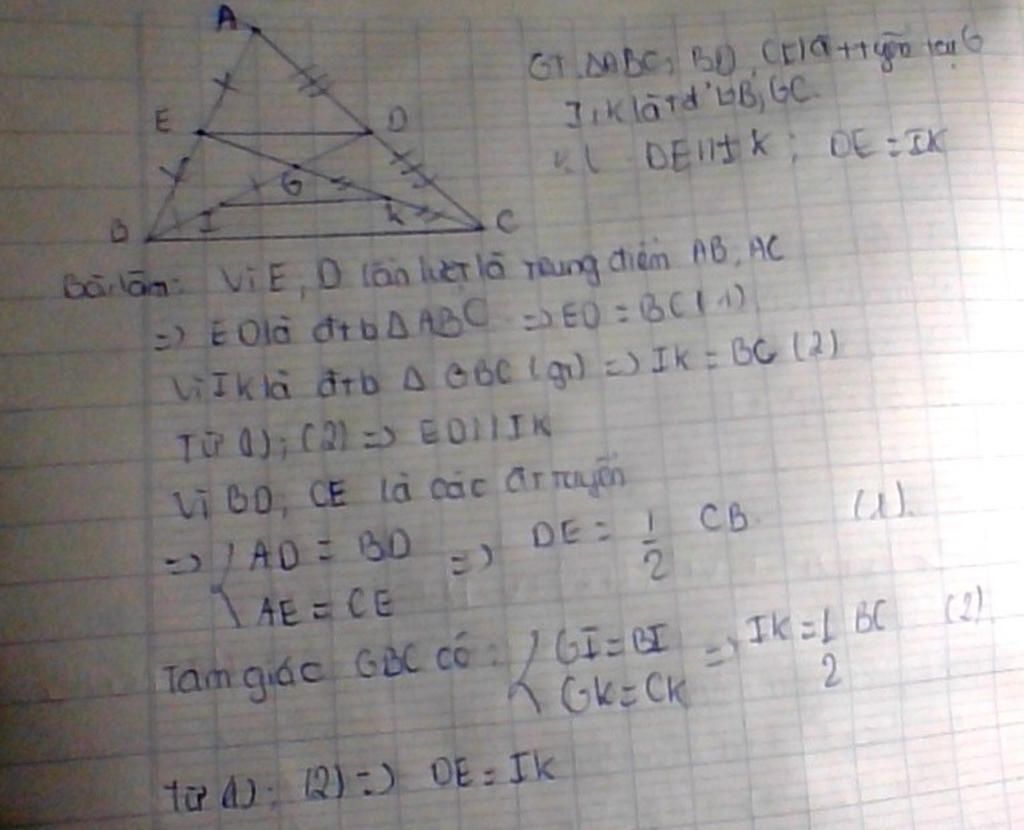 A
E
D
G
B
I
K
C
GT ΔABC, BD, CE là tyến tại G
I, K là tđ GB, GC.
KL DE // IK ; DE = IK
Bài làm: Vì E, D lần lượt là trung điểm AB, AC
=> ED là đtb Δ ABC => ED = BC (1)
Vì IK là đtb Δ GBC (gt) => IK = BC (2)
Từ (1); (2) => ED // IK
Vì BD, CE là các đt tuyến
=> { AD = BD => DE = 1/2 CB (1).
AE = CE
Tam giác GBC có : { GI = BI => IK = 1/2 BC (2)
GK = CK
Từ (1); (2) => DE = IK